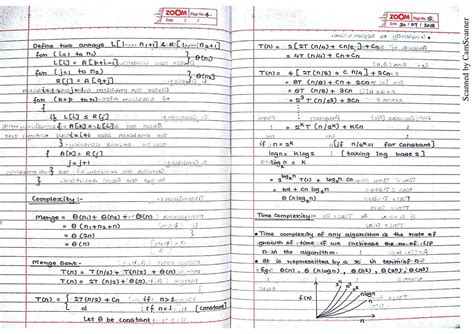 ZOOM Page No. 4.
Date
Define two arrays L[1...n1+1] & R[1...n2+1]
for (i=1 to n1)
L[i] = A[p+i-1]
for (j=1 to n2)
R[j] = A[q+j]
Θ(n)
for (k=p to r)
{
if L[i] ≤ R[j]
A[k] = L[i]
i=i+1
}
if A[k] = R[j]
j=j+1
}
Θ(n)
Complexity :-
Merge = Θ(n1) + Θ(n2) + Θ(n)
= Θ(n1+n2+n)
= Θ(2n)
= Θ(n)
Merge Sort -
T(n) = T(n/2) + T(n/2) + Θ(n)
T(n) = 2T (n/2) + Θ(n)
T(n) = { 2T(n/2) + Cn if n>1
d if n=1 (constant)
Let Θ be constant
ZOOM Page No. 5.
Date 20 / 07 / 2018
T(n) = 2[2T(n/4) + Cn/2] + Cn
= 4T (n/4) + Cn + Cn
T(n) = 4[2T(n/8) + C n/4] + 2Cn
= 8T (n/8) + Cn + 2Cn
= 2³T (n/2³) + 3Cn
= 2ᵏT (n/2ᵏ) + KCn
if n=2ᵏ [if n/2ᵏ=1 for constant]
log n = K log 2 [taking log base 2]
T(n) = + Cn log₂n
= nd + Cn log₂n
= Θ(n log n)
Time Complexity :-
• Time complexity of any algorithm is the rate of
growth of time if we increase the no. of i/p
in the algorithm.
• It is represented by a in terms of
eg:- Θ(n), Θ(n log n), Θ(n²), Θ(n³), Θ(2ⁿ)
f(n)
n log n
n
n
Scanned by CamScanner